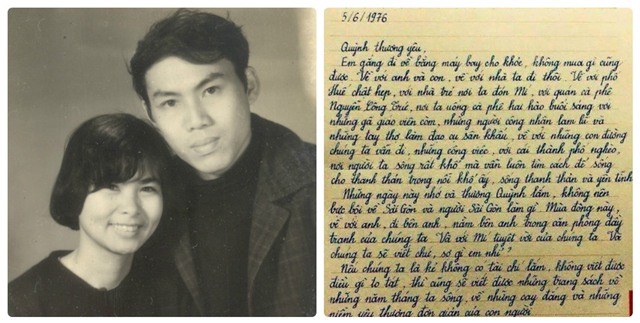 5/6/1976
Quỳnh thương yêu,
Em gắng đi về bằng máy bay cho khỏe, không mua gì cũng
được. Về với anh và con, về với nhà ta đi thôi. Về với phố
Huế chật hẹp, với nhà trẻ nơi ta đón Mí, với quán cà phê
Nguyễn Công Trứ, nơi ta uống cà phê hai hào buổi sáng với
những gã giáo viên còm, những người công nhân lam lũ và
những tay thợ làm đạo cụ sân khấu, về với những con đường
chúng ta vẫn đi, những công việc, với cái thành phố nghèo,
nơi người ta sống rất khổ mà vẫn luôn tìm cách để sống
cho thanh thản trong nỗi khổ ấy, sống thanh thản và yên tĩnh
Những ngày này nhớ và thương Quỳnh lắm, không nên
bực bội về Sài Gòn và người Sài Gòn làm gì. Mùa đông này,
về với anh, đi bên anh, nằm bên anh trong căn phòng đầy
tranh của chúng ta. Và với Mí tuyệt vời của chúng ta. Và
chúng ta sẽ viết chứ, sợ gì em nhỉ?
Nếu chúng ta là kẻ không có tài chi lắm, không viết được
điều gì to tát, thì cũng sẽ viết được những trang sách về
những năm tháng ta sống, về những cay đắng và những
niềm yêu thương đơn giản của con người